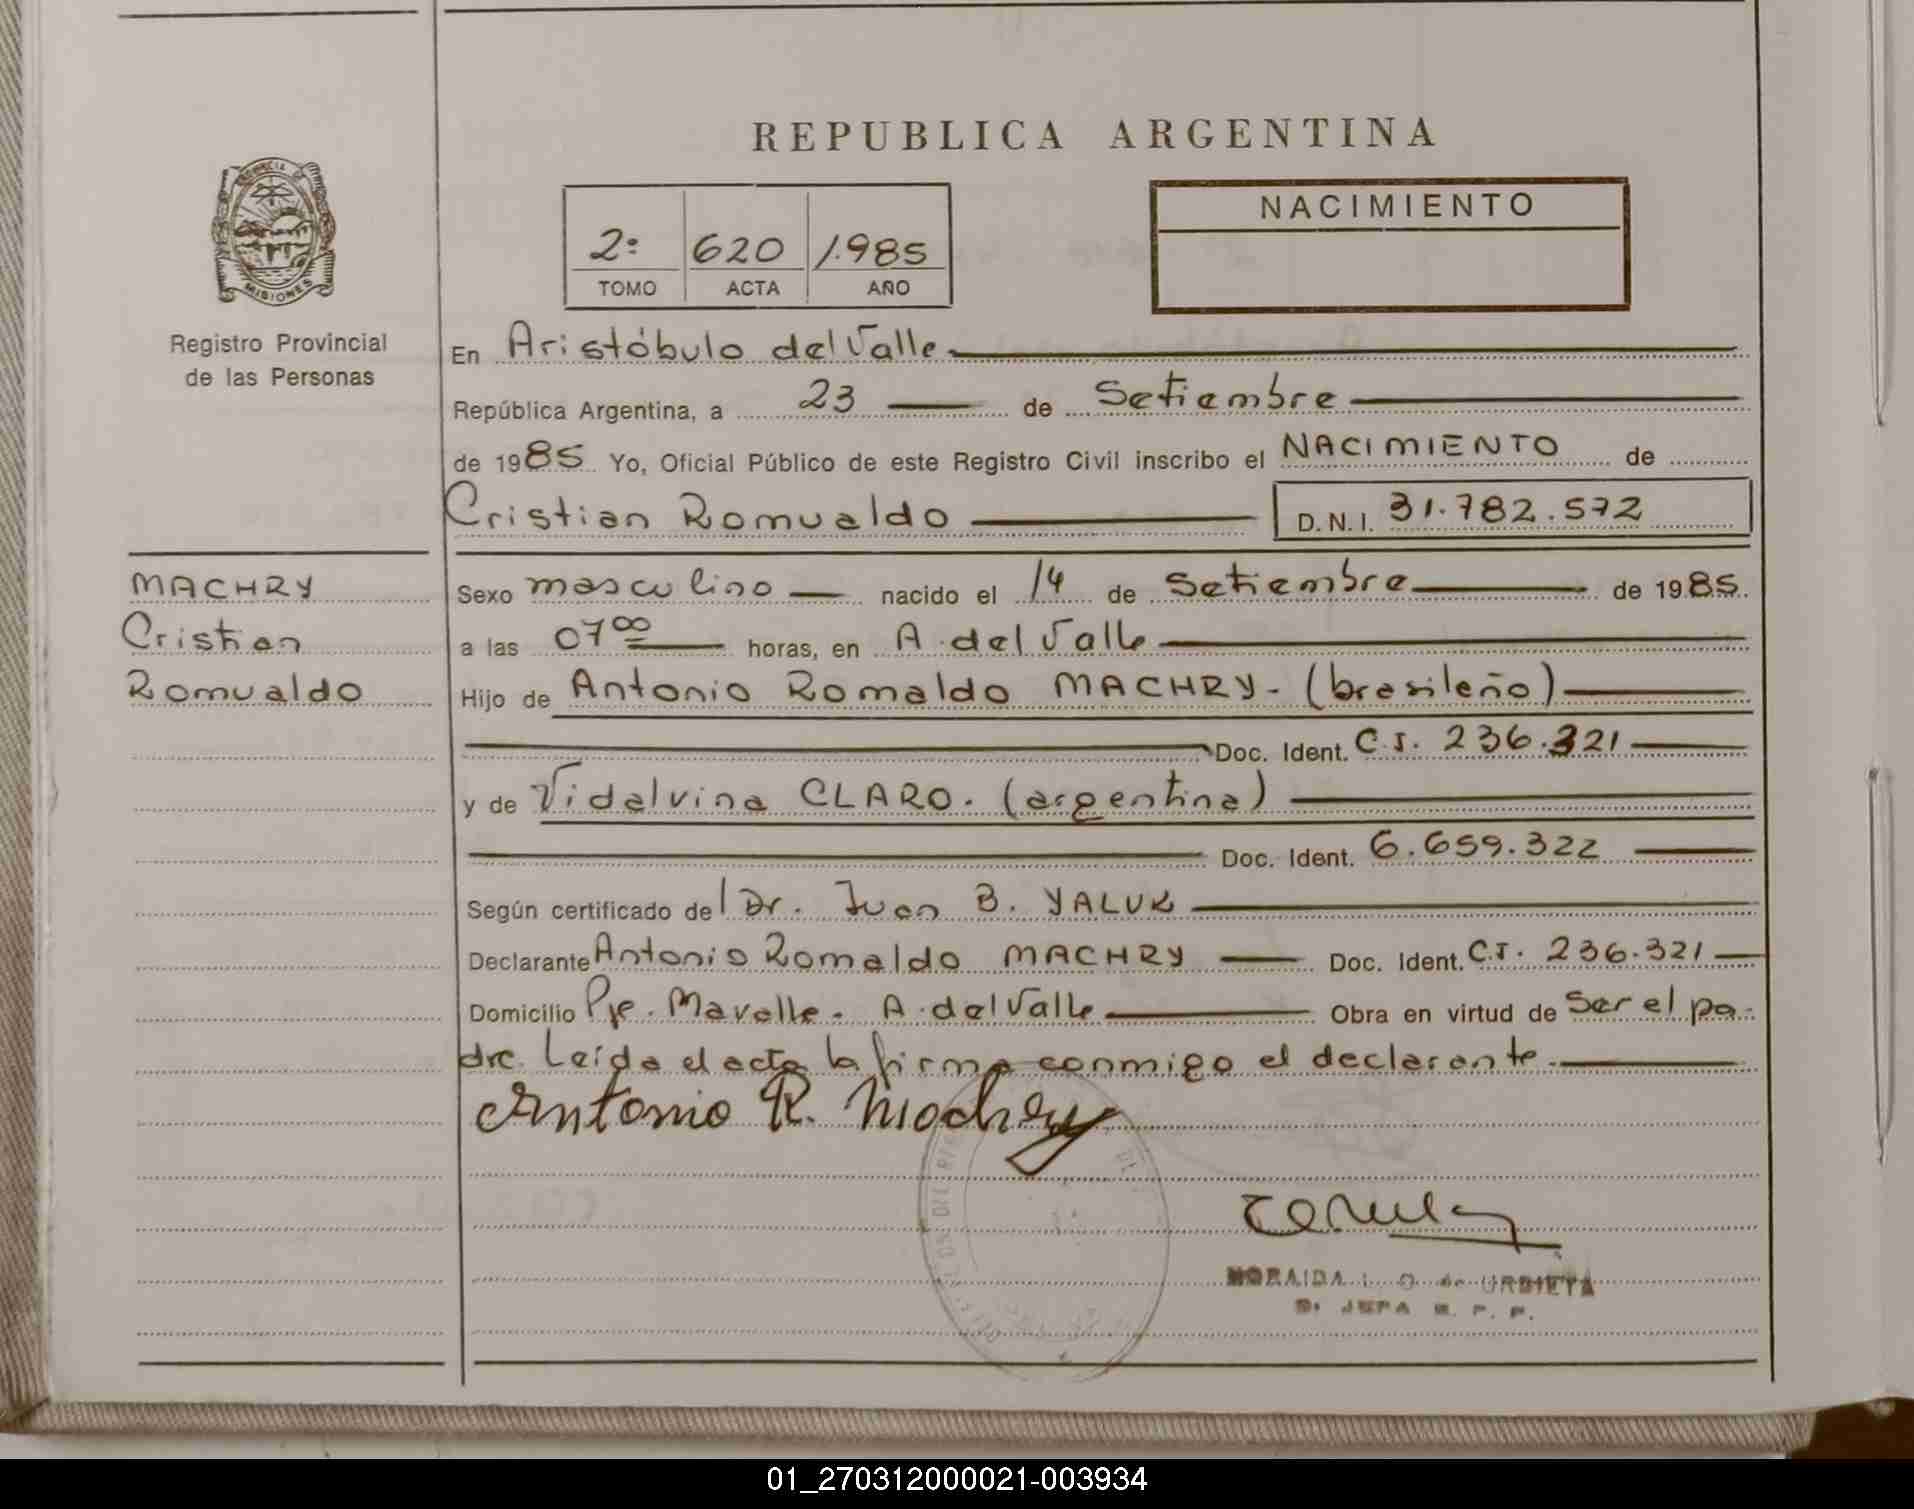 REPUBLICA ARGENTINA
PROVINCIA DE
MISIONES
Registro Provincial
de las Personas
2º 620 1.985
TOMO ACTA AÑO
NACIMIENTO
En Aristóbulo del Valle
República Argentina, a 23 de Setiembre
de 1985 Yo, Oficial Público de este Registro Civil inscribo el NACIMIENTO de
Cristian Romualdo D.N.I. 31.782.572
MACHRY
Cristian
Romualdo
Sexo masculino nacido el 14 de Setiembre de 1985.
a las 07 00 horas, en A. del Valle
Hijo de Antonio Romaldo MACHRY - (brasileño)
Doc. Ident. C.I. 236.321
y de Vidalvina CLARO. (argentina)
Doc. Ident. 6.659.322
Según certificado del Dr. Juan B. YALUK
Declarante Antonio Romaldo MACHRY Doc. Ident. C.I. 236.321
Domicilio Pje. Mavalle. A. del Valle Obra en virtud de Ser el pa-
dre. Leída el acta la firma conmigo el declarante.
Antonio R. Machry
MORAIDA de URBIETA
JEFA R. P. P.
01_270312000021-003934